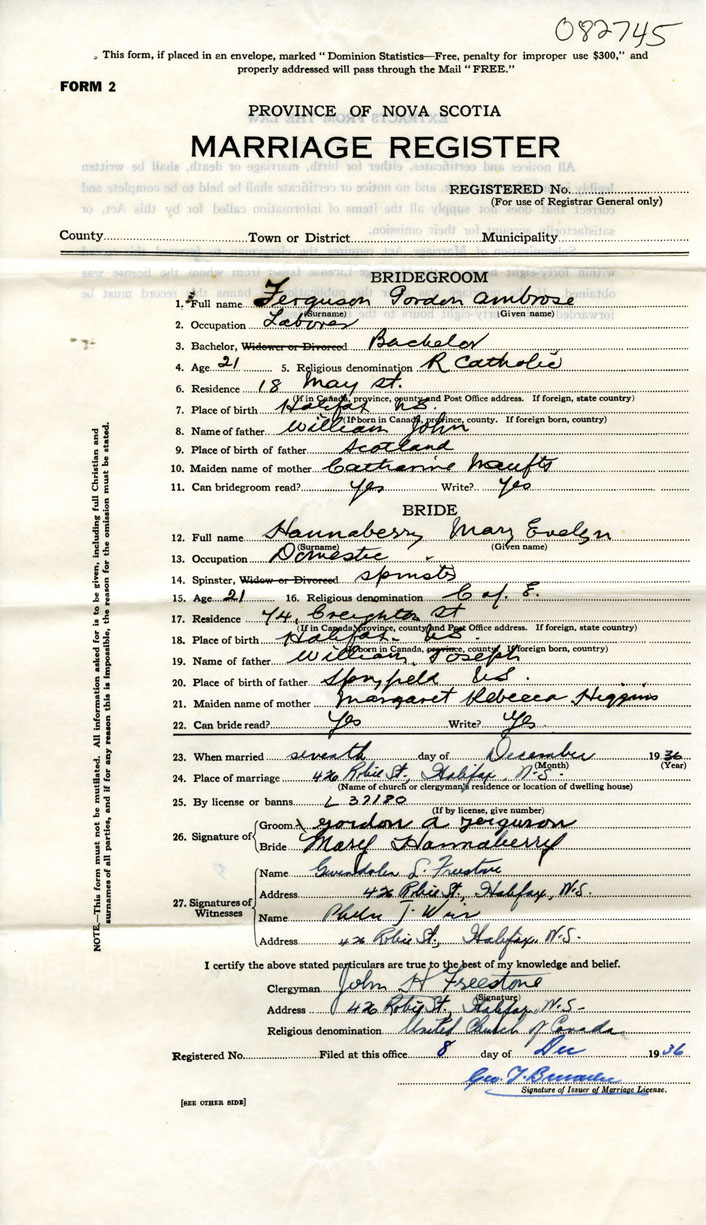 082745
This form, if placed in an envelope, marked "Dominion Statistics—Free, penalty for improper use $300," and
properly addressed will pass through the Mail "FREE."
FORM 2
PROVINCE OF NOVA SCOTIA
MARRIAGE REGISTER
REGISTERED No.
(For use of Registrar General only)
County Town or District Municipality
BRIDEGROOM
1. Full name Ferguson Gordon Ambrose
(Surname) (Given name)
2. Occupation Laborer
3. Bachelor, Widower or Divorced Bachelor
4. Age 21 5. Religious denomination R Catholic
6. Residence 18 May St.
(If in Canada, province, county and Post Office address. If foreign, state country)
7. Place of birth Halifax N.S.
(If born in Canada, province, county. If foreign born, country)
8. Name of father William John
9. Place of birth of father Scotland
10. Maiden name of mother Catharine
11. Can bridegroom read? Yes Write? Yes
BRIDE
12. Full name Hannaberry Mary Evelyn
(Surname) (Given name)
13. Occupation Domestic
14. Spinster, Widow or Divorced spinster
15. Age 21 16. Religious denomination C of. E.
17. Residence 74, Creighton St
(If in Canada, province, county and Post Office address. If foreign, state country)
18. Place of birth Halifax. N.S.
(If born in Canada, province, county. If foreign born, country)
19. Name of father William Joseph
20. Place of birth of father N.S.
21. Maiden name of mother Margaret Rebecca Higgins
22. Can bride read? Yes Write? Yes
23. When married seventh day of December 1936
(Month) (Year)
24. Place of marriage 426 Robie St., Halifax, N.S.
(Name of church or clergyman's residence or location of dwelling house)
25. By license or banns L 37180
(If by license, give number)
26. Signature of
Groom Gordon A Ferguson
Bride Mary Hannaberry
27. Signatures of Witnesses
Name Gwendolen L. Freestone
Address 426 Robie St., Halifax, N.S.
Name T.
Address 426 Robie St., Halifax, N.S.
I certify the above stated particulars are true to the best of my knowledge and belief.
Clergyman John H Freestone
(Signature)
Address 426 Robie St., Halifax, N.S.
Religious denomination United Church of Canada
Registered No. Filed at this office 8 day of Dec 1936
Geo. T.
Signature of Issuer of Marriage License.
[SEE OTHER SIDE]
NOTE.—This form must not be mutilated. All information asked for is to be given, including full Christian and
surnames of all parties, and if for any reason this is impossible, the reason for the omission must be stated.